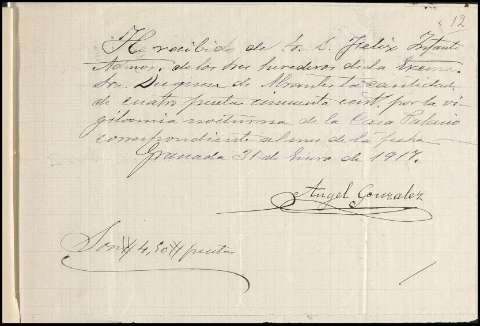 12
He recibido de Dn. D. Felix Infante
Admor. de los tres herederos de la Excma.
Sra. Duquesa de Abrantes la cantidad
de cuatro pesetas cincuenta cents. por la vi-
gilancia nocturna de la Casa Palacio
correspondiente al mes de la fecha
Granada 31 de Enero de 1917.
Angel Gonzalez
Son # 4,50 # pesetas